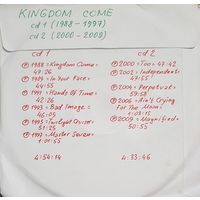 KINGDOM COME
cd 1 (1988-1997)
cd 2 (2000-2009)
cd 1
1988 = Kingdom Come = 49:26
1989 = In Your Face = 44:55
1991 = Hands Of Time = 42:26
1993 = Bad Image = 46:05
1995 = Twilight Cruiser = 51:25
1997 = Master Seven = 1:01:55
4:54:14
cd 2
2000 = Too = 47:42
2002 = Independent = 47:55
2004 = Perpetual = 59:58
2006 = Ain't Crying For The Moon = 1:03:15
2009 = Magnified = 50:53
4:33:46